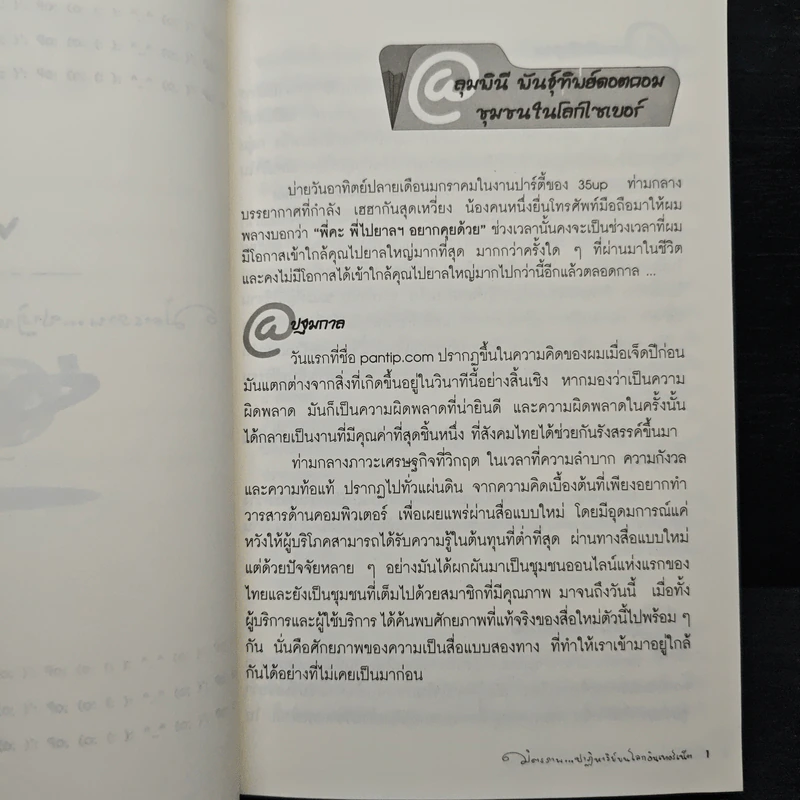 @ ลุมพินี พันธุ์ทิพย์ดอตคอม
ชุมชนในโลกไซเบอร์
บ่ายวันอาทิตย์ปลายเดือนมกราคมในงานปาร์ตี้ของ 35up ท่ามกลาง
บรรยากาศที่กำลัง เฮฮากันสุดเหวี่ยง น้องคนหนึ่งยื่นโทรศัพท์มือถือมาให้ผม
พลางบอกว่า "พี่คะ พี่ไปยาลฯ อยากคุยด้วย" ช่วงเวลานั้นคงจะเป็นช่วงเวลาที่ผม
มีโอกาสเข้าใกล้คุณไปยาลใหญ่มากที่สุด มากกว่าครั้งใด ๆ ที่ผ่านมาในชีวิต
และคงไม่มีโอกาสได้เข้าใกล้คุณไปยาลใหญ่มากไปกว่านี้อีกแล้วตลอดกาล ...
@ ปฐมกาล
วันแรกที่ชื่อ pantip.com ปรากฏขึ้นในความคิดของผมเมื่อเจ็ดปีก่อน
มันแตกต่างจากสิ่งที่เกิดขึ้นอยู่ในวินาทีนี้อย่างสิ้นเชิง หากมองว่าเป็นความ
ผิดพลาด มันก็เป็นความผิดพลาดที่น่ายินดี และความผิดพลาดในครั้งนั้น
ได้กลายเป็นงานที่มีคุณค่าที่สุดชิ้นหนึ่ง ที่สังคมไทยได้ช่วยกันรังสรรค์ขึ้นมา
ท่ามกลางภาวะเศรษฐกิจที่วิกฤต ในเวลาที่ความลำบาก ความกังวล
และความท้อแท้ ปรากฏไปทั่วแผ่นดิน จากความคิดเบื้องต้นที่เพียงอยากทำ
วารสารด้านคอมพิวเตอร์ เพื่อเผยแพร่ผ่านสื่อแบบใหม่ โดยมีอุดมการณ์แค่
หวังให้ผู้บริโภคสามารถได้รับความรู้ในต้นทุนที่ต่ำที่สุด ผ่านทางสื่อแบบใหม่
แต่ด้วยปัจจัยหลาย ๆ อย่างมันได้ผกผันมาเป็นชุมชนออนไลน์แห่งแรกของ
ไทยและยังเป็นชุมชนที่เต็มไปด้วยสมาชิกที่มีคุณภาพ มาจนถึงวันนี้ เมื่อทั้ง
ผู้บริการและผู้ใช้บริการ ได้ค้นพบศักยภาพที่แท้จริงของสื่อใหม่ตัวนี้ไปพร้อม ๆ
กัน นั่นคือศักยภาพของความเป็นสื่อแบบสองทาง ที่ทำให้เราเข้ามาอยู่ใกล้
กันได้อย่างที่ไม่เคยเป็นมาก่อน
มิตรภาพ...ปาฏิหาริย์บนโลกอินเทอร์เน็ต 1